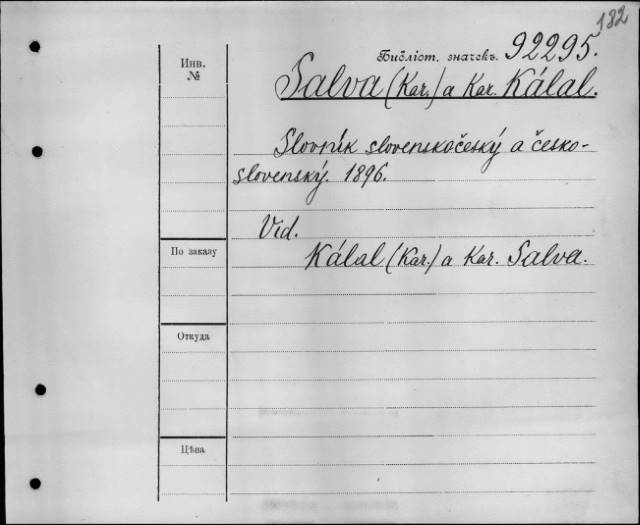 182
Библіот. значекъ. 92295.
Инв.
№
Salva (Kar.) a Kar. Kálal.
Slovník slovenskočeský a česko-
slovenský. 1896.
Vid.
По заказу
Kálal (Kar.) a Kar. Salva.
Откуда
Цѣна